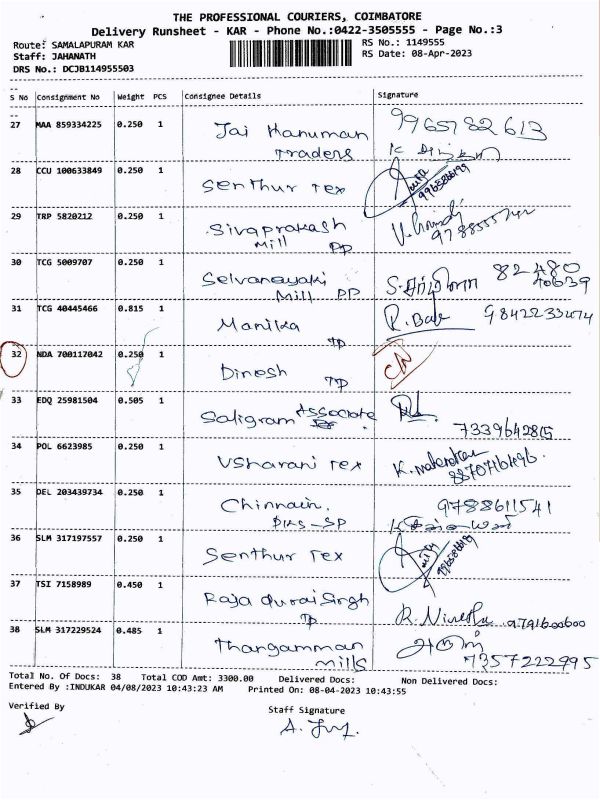 THE PROFESSIONAL COURIERS, COIMBATORE
Delivery Runsheet - KAR - Phone No.:0422-3505555 - Page No.:3
Route: SAMALAPURAM KAR
Staff: JAHANATH
DRS No.: DCJB114955503
RS No.: 1149555
RS Date: 08-Apr-2023
S No Consignment No Weight PCS Consignee Details Signature
27 MAA 859334225 0.250 1 Jai Hanuman 9965782613
Traders
28 CCU 100633849 0.250 1 Senthur Tex
29 TRP 5820212 0.250 1 Sivaprakash
Mill PP
30 TCG 5009707 0.250 1 Selvanayaki 82480
Mill PP 40639
31 TCG 40445466 0.815 1 Manika R. Babu
TP
32 NDA 700117042 0.250 1 Dinesh CN
TP
33 EDQ 25981504 0.505 1 Saligram Associate
7339642815
34 POL 6623985 0.250 1 Usharani Tex
35 DEL 203439734 0.250 1 Chinnain. 9788611541
36 SLM 317197557 0.250 1 Senthur Tex
37 TSI 7158989 0.450 1 Raja durai Singh
TP 9791600600
38 SLM 317229524 0.485 1 Thangamman
Mills 7357222995
Total No. Of Docs: 38 Total COD Amt: 3300.00 Delivered Docs: Non Delivered Docs:
Entered By :INDUKAR 04/08/2023 10:43:23 AM Printed On: 08-04-2023 10:43:55
Verified By
Staff Signature